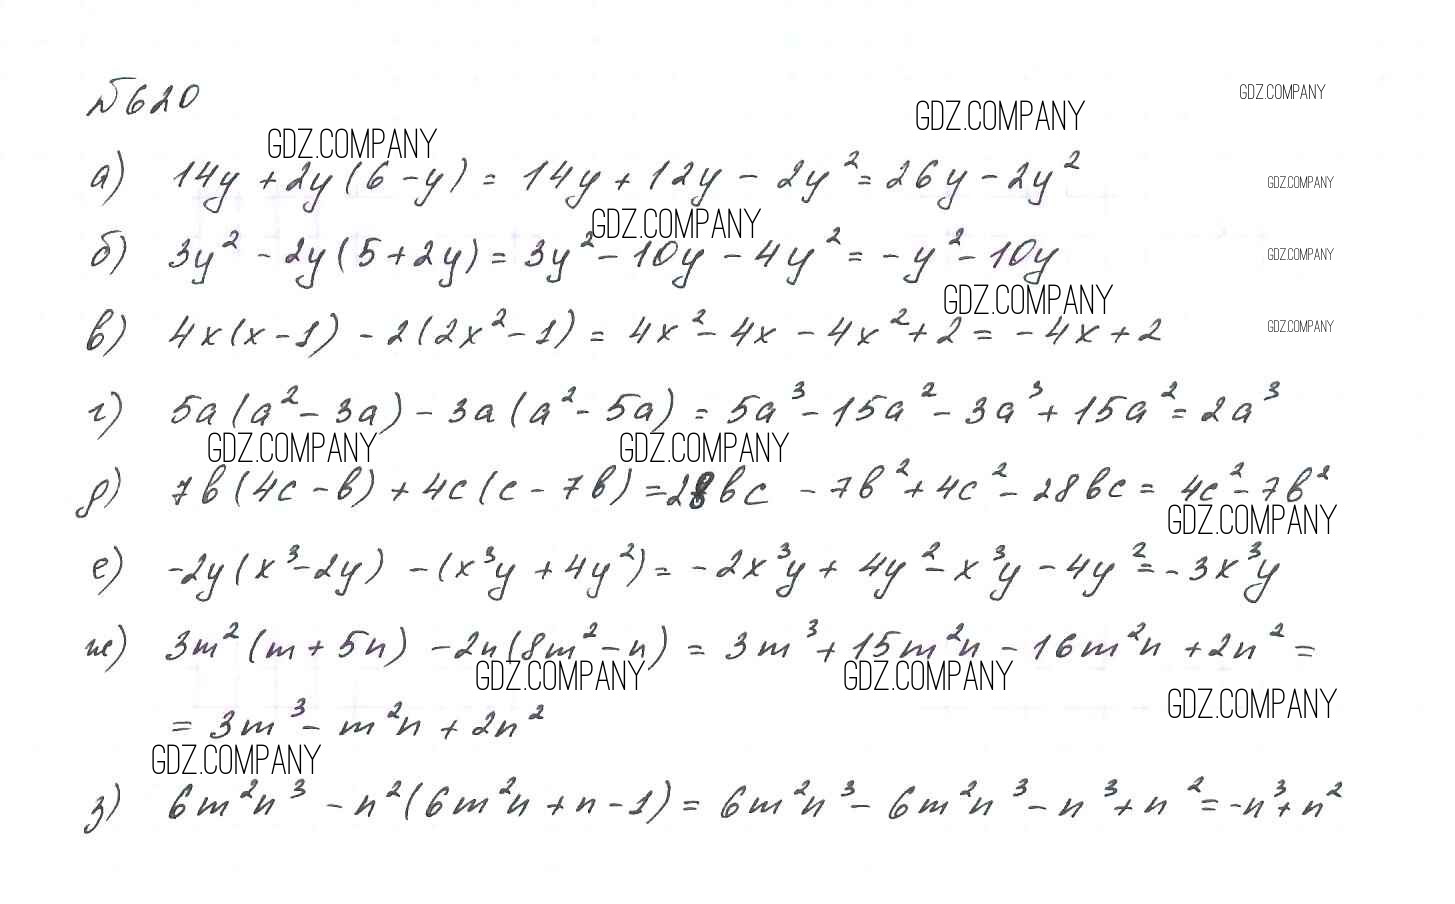 №620
GDZ.COMPANY
GDZ.COMPANY
GDZ.COMPANY
а) 14y + 2y(6 - y) = 14y + 12y - 2y² = 26y - 2y²
GDZ.COMPANY
GDZ.COMPANY
б) 3y² - 2y(5 + 2y) = 3y² - 10y - 4y² = -y² - 10y
GDZ.COMPANY
GDZ.COMPANY
в) 4x(x - 1) - 2(2x² - 1) = 4x² - 4x - 4x² + 2 = -4x + 2
GDZ.COMPANY
г) 5a(a² - 3a) - 3a(a² - 5a) = 5a³ - 15a² - 3a³ + 15a² = 2a³
GDZ.COMPANY
GDZ.COMPANY
д) 7b(4c - b) + 4c(c - 7b) = 28bc - 7b² + 4c² - 28bc = 4c² - 7b²
GDZ.COMPANY
е) -2y(x³ - 2y) - (x³y + 4y²) = -2x³y + 4y² - x³y - 4y² = -3x³y
ж) 3m²(m + 5n) - 2n(8m² - n) = 3m³ + 15m²n - 16m²n + 2n² =
GDZ.COMPANY
GDZ.COMPANY
GDZ.COMPANY
= 3m³ - m²n + 2n²
GDZ.COMPANY
з) 6m²n³ - n²(6m²n + n - 1) = 6m²n³ - 6m²n³ - n³ + n² = -n³ + n²